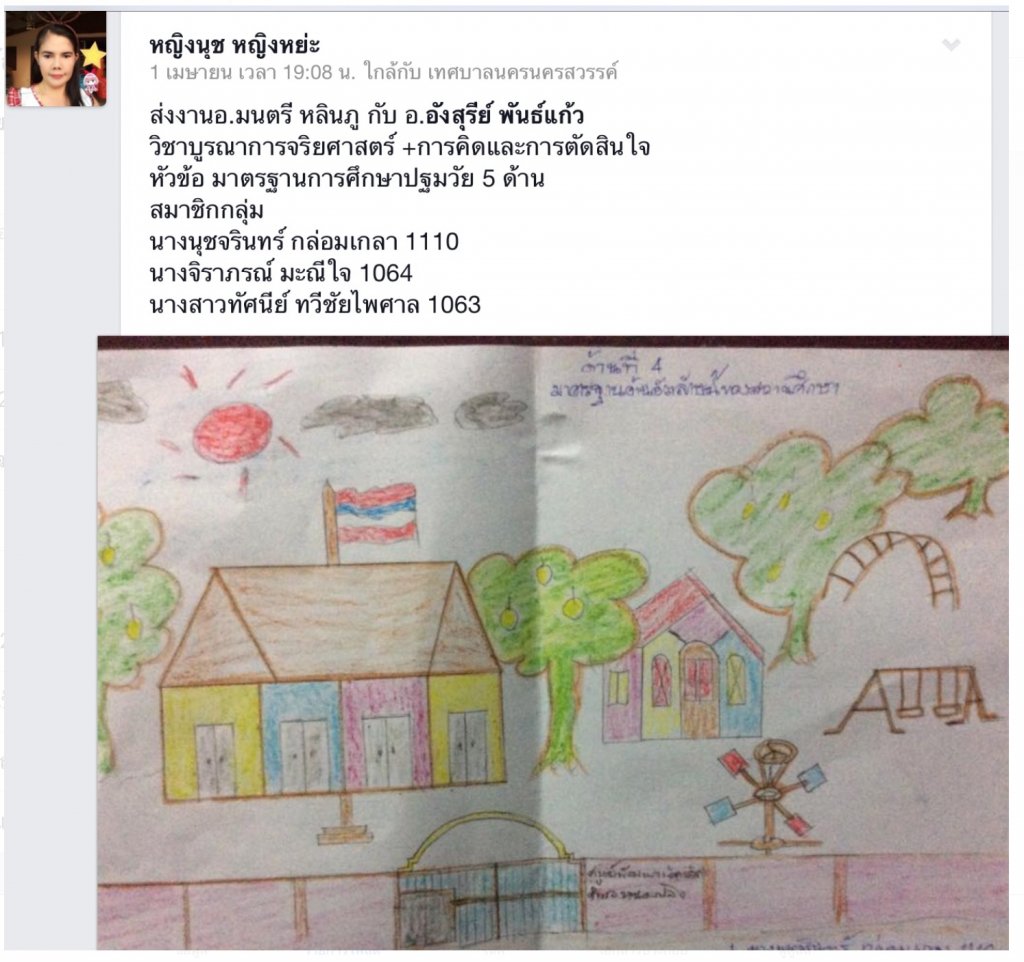 หญิงนุช หญิงหย่ะ
1 เมษายน เวลา 19:08 น. ใกล้กับ เทศบาลนครนครสวรรค์
ส่งงานอ.มนตรี หลินภู กับ อ.อังสุรีย์ พันธ์แก้ว
วิชาบูรณาการจริยศาสตร์ +การคิดและการตัดสินใจ
หัวข้อ มาตรฐานการศึกษาปฐมวัย 5 ด้าน
สมาชิกกลุ่ม
นางนุชจรินทร์ กล่อมเกลา 1110
นางจิราภรณ์ มะณีใจ 1064
นางสาวทัศนีย์ ทวีชัยไพศาล 1063
ด้านที่ 4
มาตรฐานด้านอัตลักษณ์ของสถานศึกษา
ศูนย์พัฒนาเด็กเล็ก